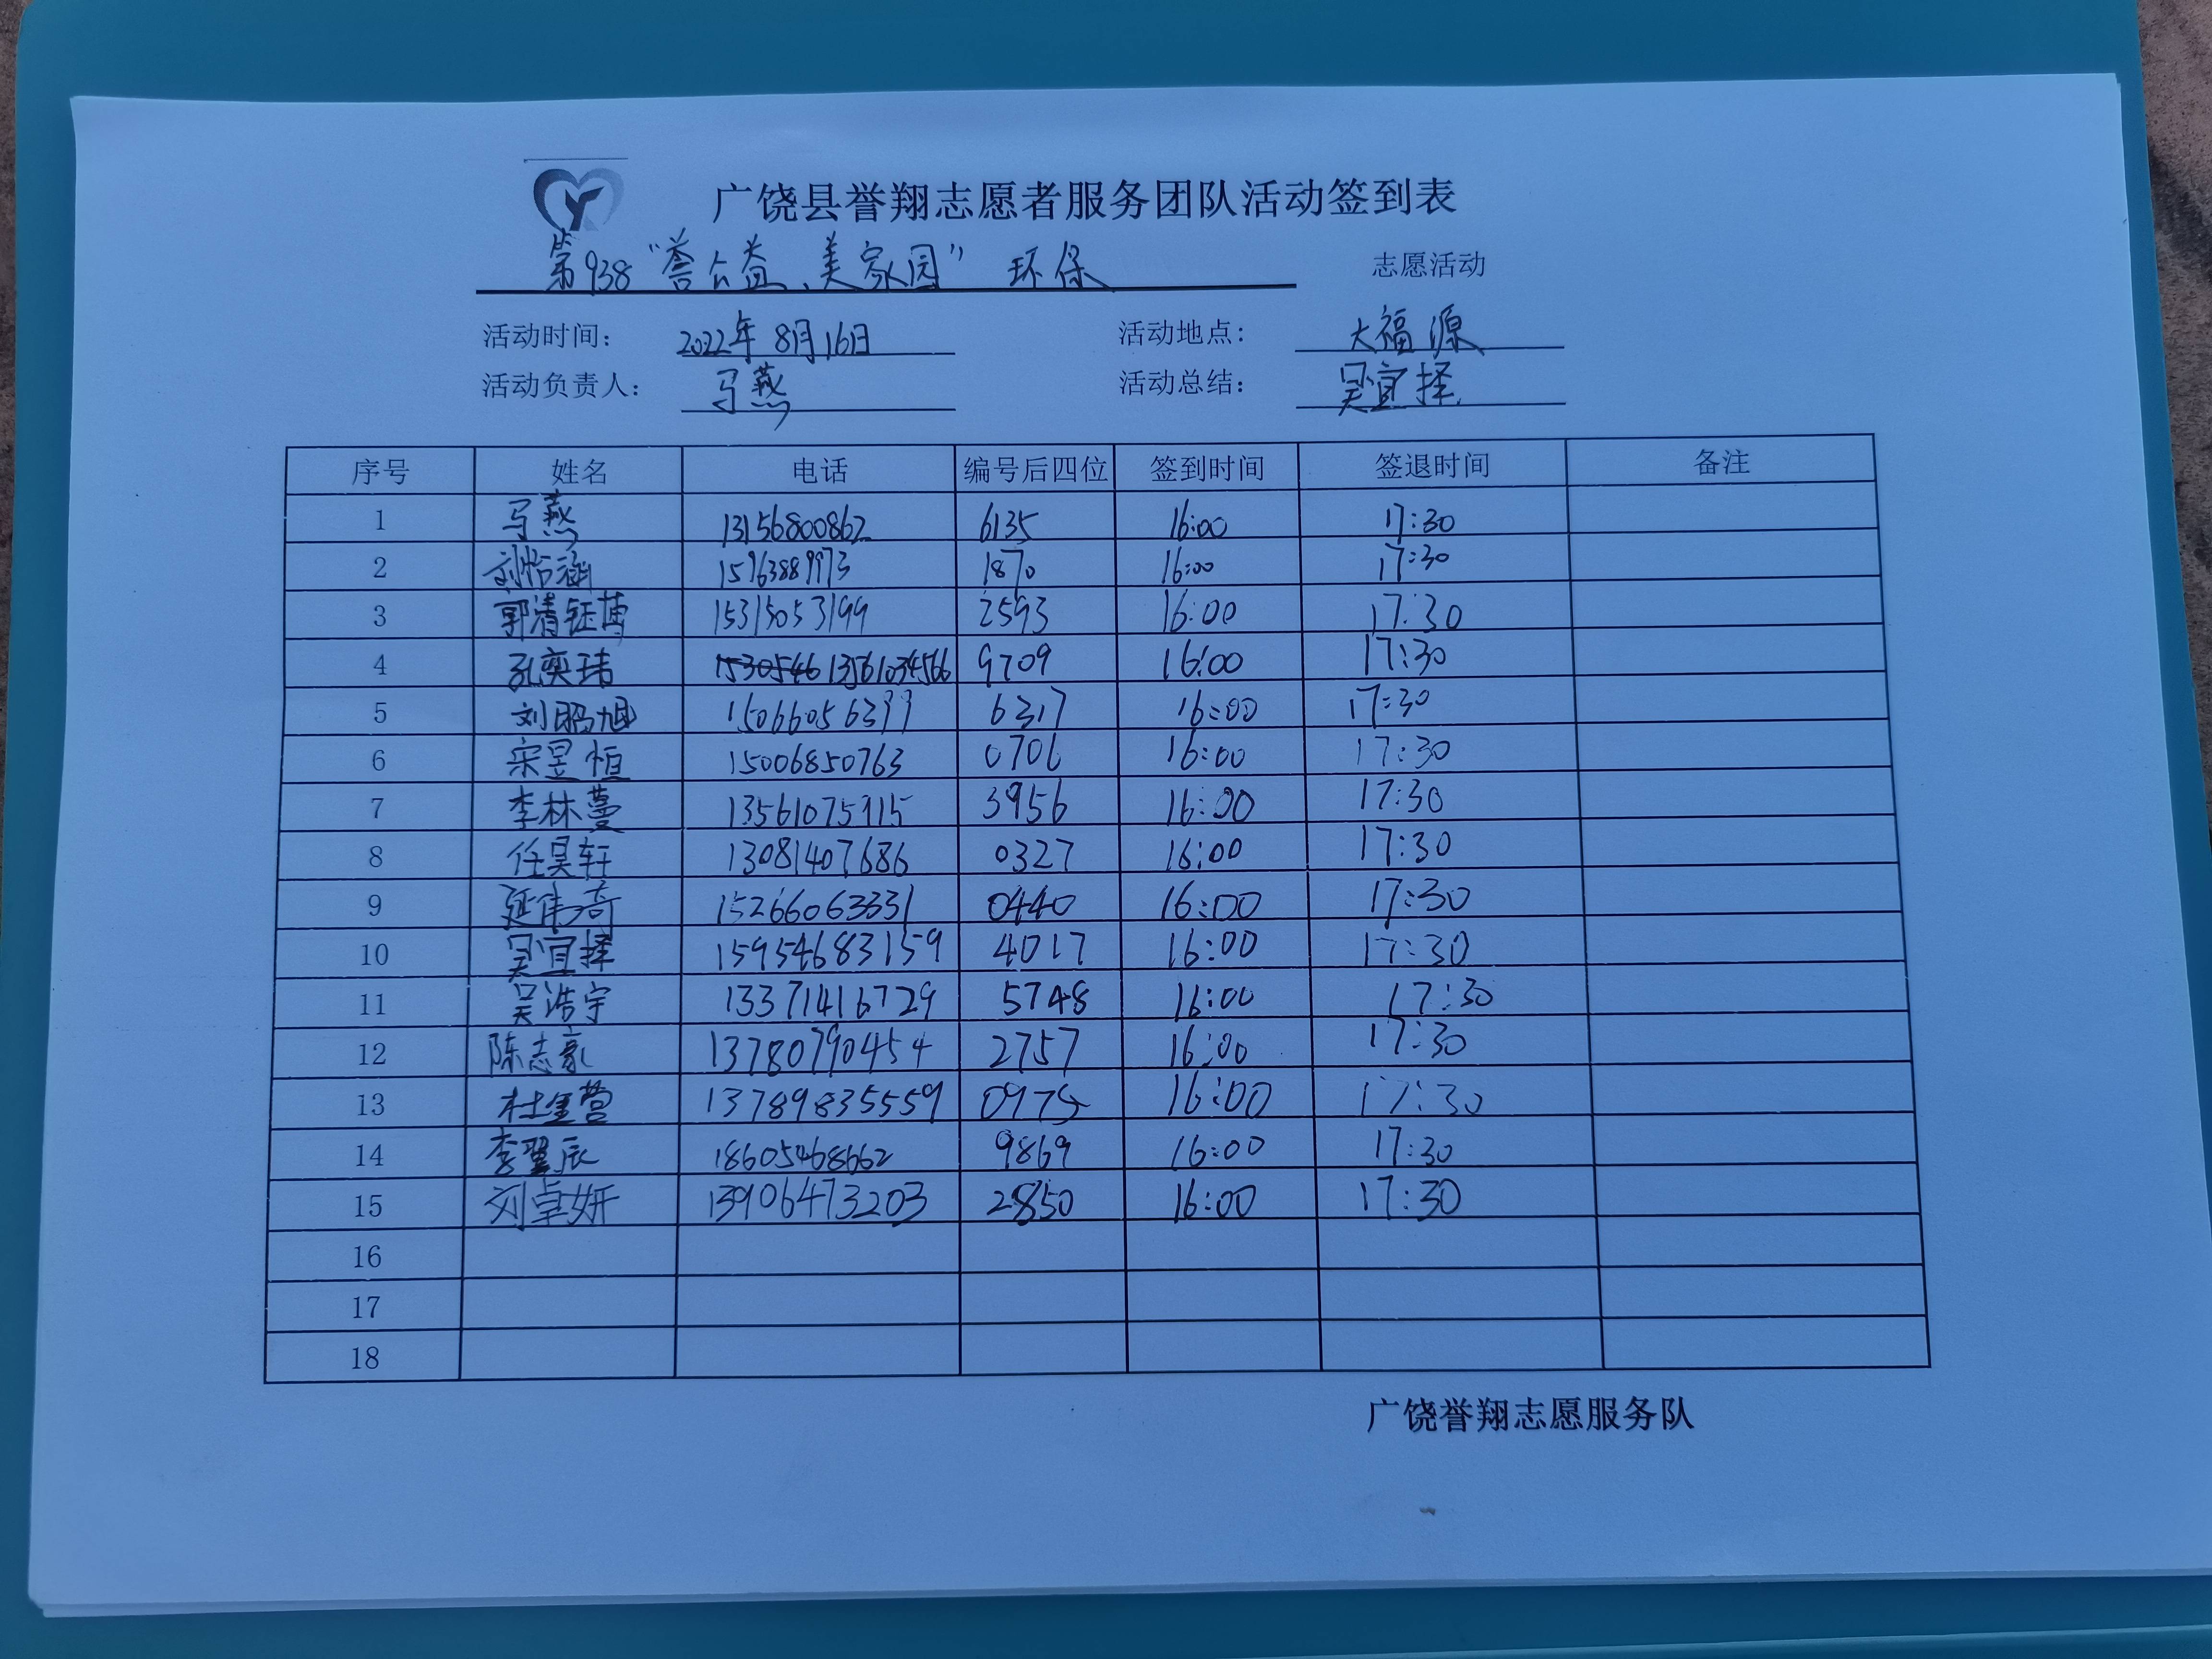 广饶县誉翔志愿者服务团队活动签到表
第938“誉公益、美家园” 环保 志愿活动
活动时间: 2022年8月16日 活动地点: 大福源
活动负责人: 马燕 活动总结: 吴宜择
序号 姓名 电话 编号后四位 签到时间 签退时间 备注
1 马燕 13156800862 6135 16:00 17:30
2 刘怡涵 15963889973 1870 16:00 17:30
3 郭清钰 15315053199 2593 16:00 17:30
4 孔奕玮 1530546 13561034566 9709 16:00 17:30
5 刘鹏旭 15066056399 6317 16:00 17:30
6 宋昱恒 15006850763 0706 16:00 17:30
7 李林蔓 13561075915 3956 16:00 17:30
8 任昊轩 13081407686 0327 16:00 17:30
9 延伟奇 15266063331 0440 16:00 17:30
10 吴宜择 15954683159 4017 16:00 17:30
11 吴浩宇 13371416729 5748 16:00 17:30
12 陈志豪 13780790454 2757 16:00 17:30
13 杜 13789835559 0975 16:00 17:30
14 李翼辰 18605468662 9869 16:00 17:30
15 刘卓妍 13906473203 2850 16:00 17:30
16
17
18
广饶誉翔志愿服务队